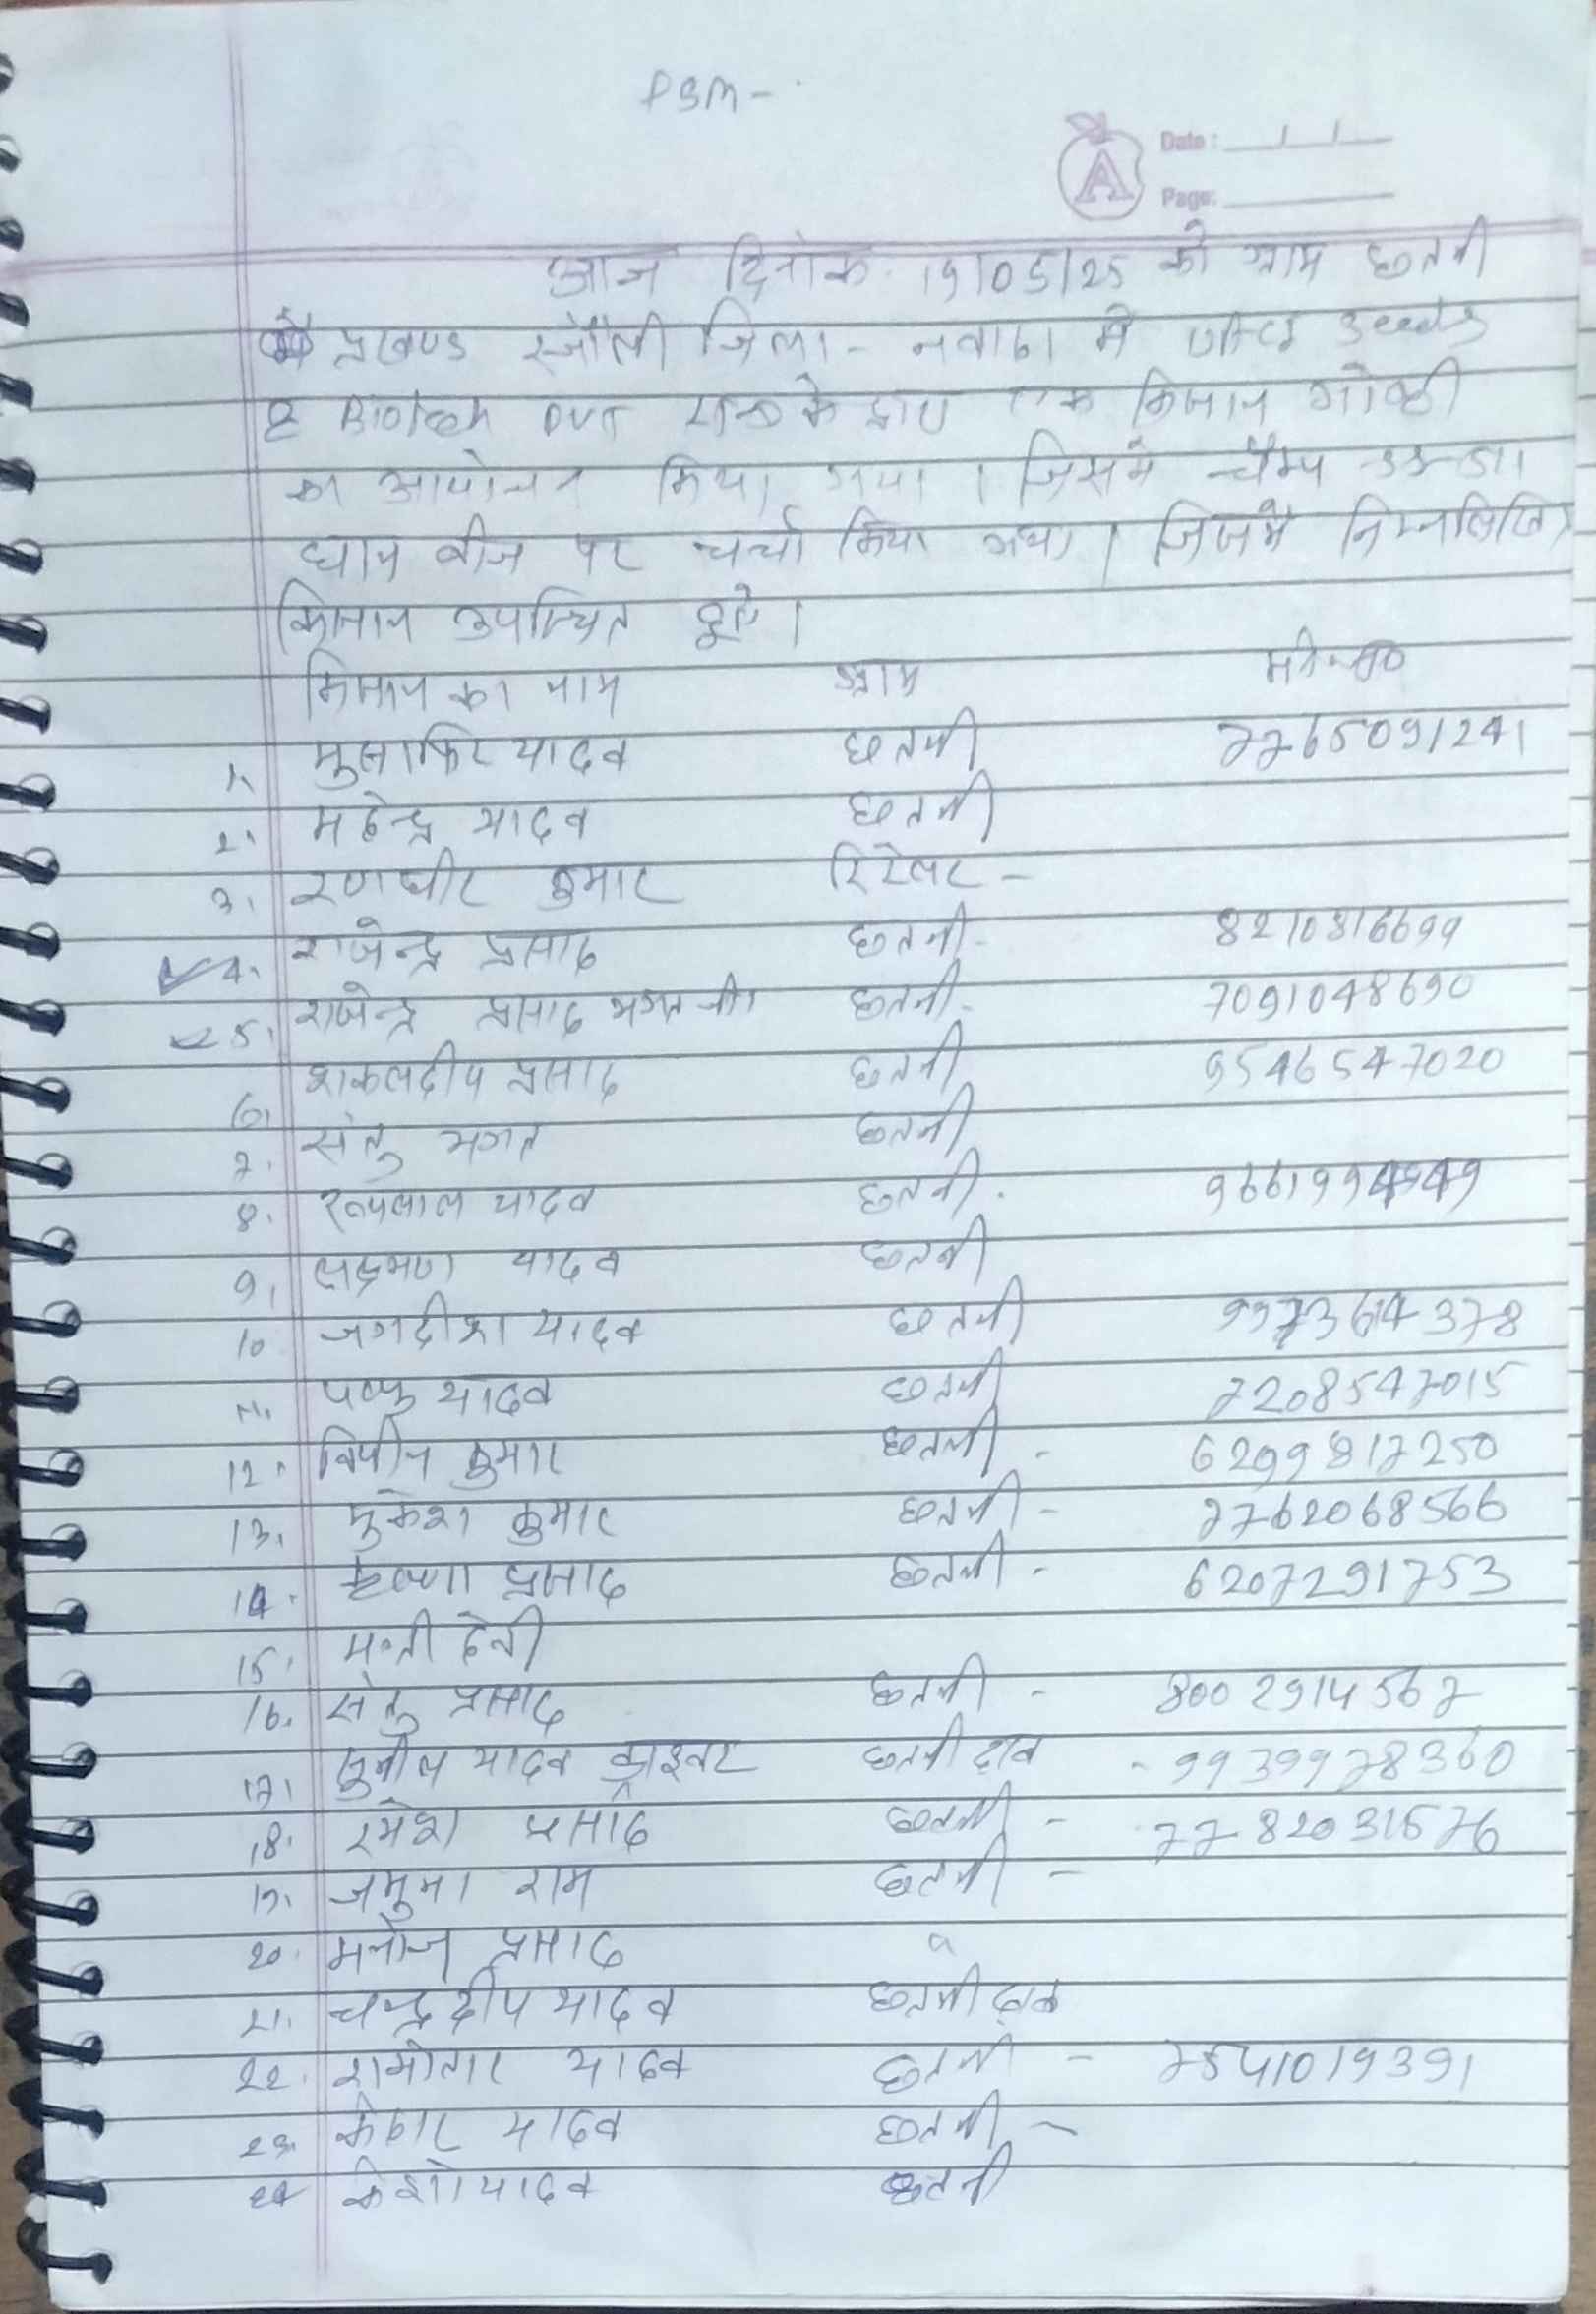 PSM -
Date :
Page:
आज दिनांक 19/05/25 को ग्राम छतनी
प्रखण्ड रजौली जिला - नवादा में Seeds
& Biotech Pvt के द्वारा एक किसान गोष्ठी
का आयोजन किया गया । जिसमें चैम्प
धान बीज पर चर्चा किया गया । जिसमें निम्नलिखित
किसान उपस्थित हुए ।
किसान का नाम ग्राम मो०-न०
1. मुसाफिर यादव छतनी 7765091241
2. महेन्द्र यादव छतनी
3. रणधीर कुमार रिटेलर -
4. राजेन्द्र प्रसाद छतनी - 8210816699
5. राजेन्द्र प्रसाद भगत जी छतनी - 7091048690
6. शकलदीप प्रसाद छतनी 9546547020
7. संतु भगत छतनी
8. रूपलाल यादव छतनी .
9. लक्ष्मण यादव छतनी
10 जगदीश यादव छतनी
11. पप्पु यादव छतनी 7208547015
12. विपीन कुमार छतनी - 6299817250
13. मुकेश कुमार छतनी - 7762068566
14. कृष्णा प्रसाद छतनी - 6207291753
15. मन्ती देवी
16. संतु प्रसाद छतनी - 8002914567
17. सुनील यादव ड्राइवर छतनी - 9939978360
18. रमेश प्रसाद छतनी - 7782031576
19. जमुना राम छतनी -
20. मनोज प्रसाद "
21. चन्द्रदीप यादव छतनी
22. रामोतार यादव छतनी - 7541019391
23. केदार यादव छतनी -
24 केशो यादव छतनी